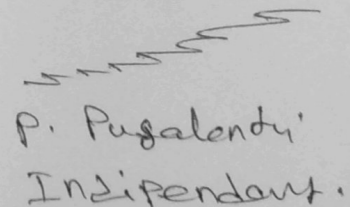 P. Pugalenti
Indipendant.